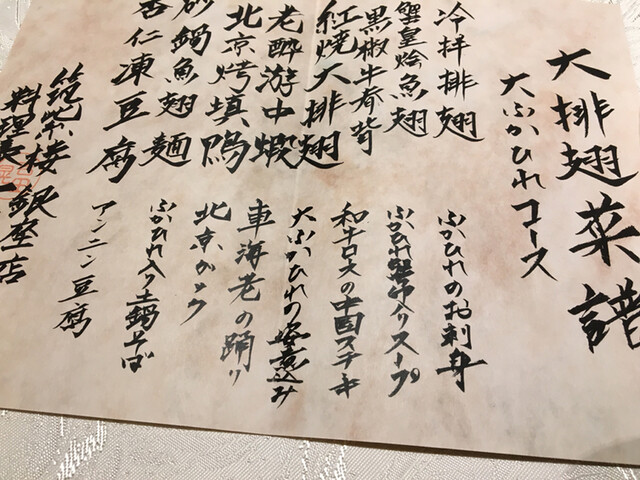 大排翅菜譜
大ふかひれコース
冷拌排翅
ふかひれのお刺身
蟹皇燴魚翅
ふかひれ蟹肉入りスープ
黒椒牛脊背
和牛ロースの中国ステーキ
紅焼大排翅
大ふかひれの姿煮込み
老酔游中蝦
車海老の踊り
北京烤填鴨
北京ダック
砂鍋魚翅麺
ふかひれ入り土鍋そば
杏仁凍豆腐
アンニン豆腐
筑紫樓 銀座店
料理長